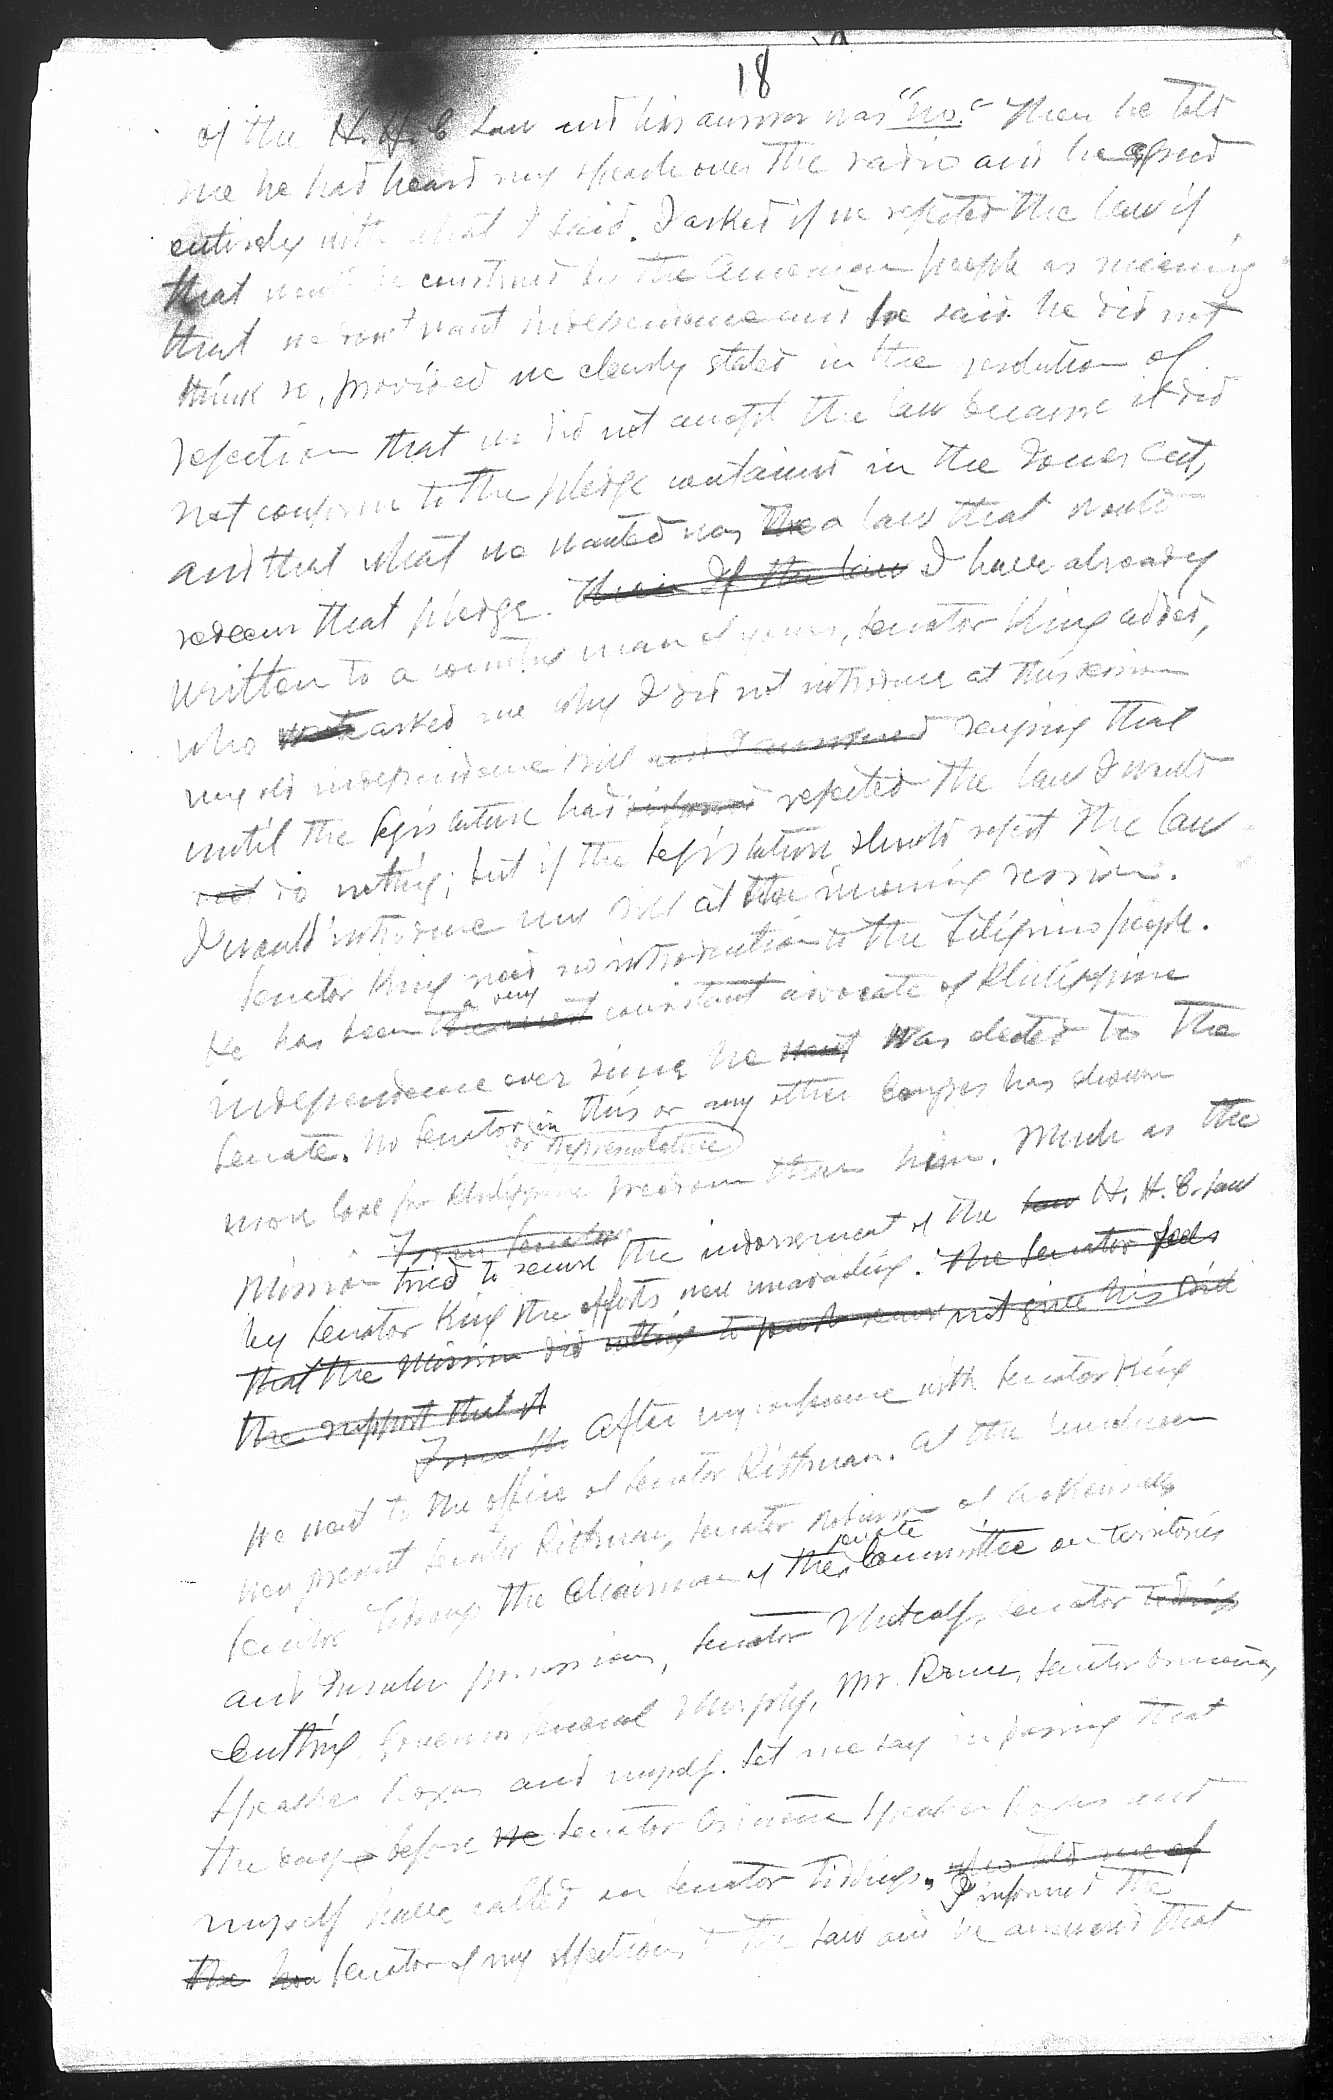 18
of the H. H. C Law and his answer was "no." Then he told
me he had heard my speech over the radio and he agreed
entirely with what I said. I asked if we rejected the law if
that would be construed by the American people as meaning
that we don't want independence and he said he did not
think so, provided we clearly stated in the resolution of
rejection that we did not accept the law because it did
not conform to the pledge contained in the Jones Act,
and that what we wanted was the a law that would
redeem that pledge. Then If the law I have already
written to a country man of yours, Senator King added,
who asked me why I did not introduce at this session
my old independence bill and I answered saying that
until the legislature had rejected the law I would
not do nothing; but if the Legislature should reject the law
I would introduce my bill at the incoming session.
Senator King needs no introduction to the Filipino people.
a very
He has been constant advocate of Philippine
independence ever since he went was elected to the
Senate. No Senator in this or any other Congress has shown
or Representative
more love for Philippine freedom than him. Much as the
From Senator
Mission tried to secure the indorsement of the law H. H. C. Law
by Senator King the efforts were unavailing. The Senator feels
that the Mission did nothing to not give his
the support that
From the After my conference with Senator King
we went to the office of Senator Pittman. At the luncheon
were present Senator Pittman, Senator Robinson of Arkansas
Senate
Senator Tydings the Chairman of the Committee on Territories
and Insular possessions, Senator Metcalf, Senator Tidings
Cutting Governor General Murphy, Mr. Senator Osmeña,
Speaker Roxas and myself. Let me say in passing that
the day before we Senator Osmeña Speaker Roxas and
myself have called on Senator Tiddings. who told me of
I informed the
the Senator of my objections to the Law and he answered that